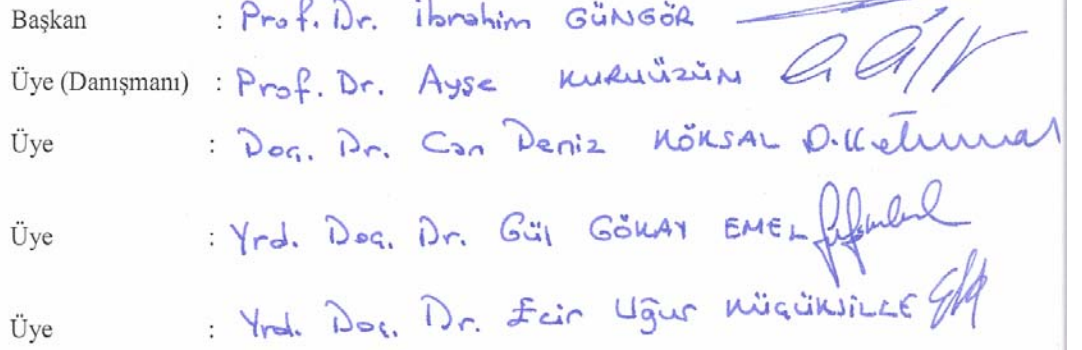 Başkan : Prof. Dr. İbrahim GÜNGÖR
Üye (Danışmanı) : Prof. Dr. Ayşe KURUÜZÜM
Üye : Doç. Dr. Can Deniz KÖKSAL
Üye : Yrd. Doç. Dr. Gül GÖKAY EMEL
Üye : Yrd. Doç. Dr. Ecir Uğur KÜÇÜKSİLLE